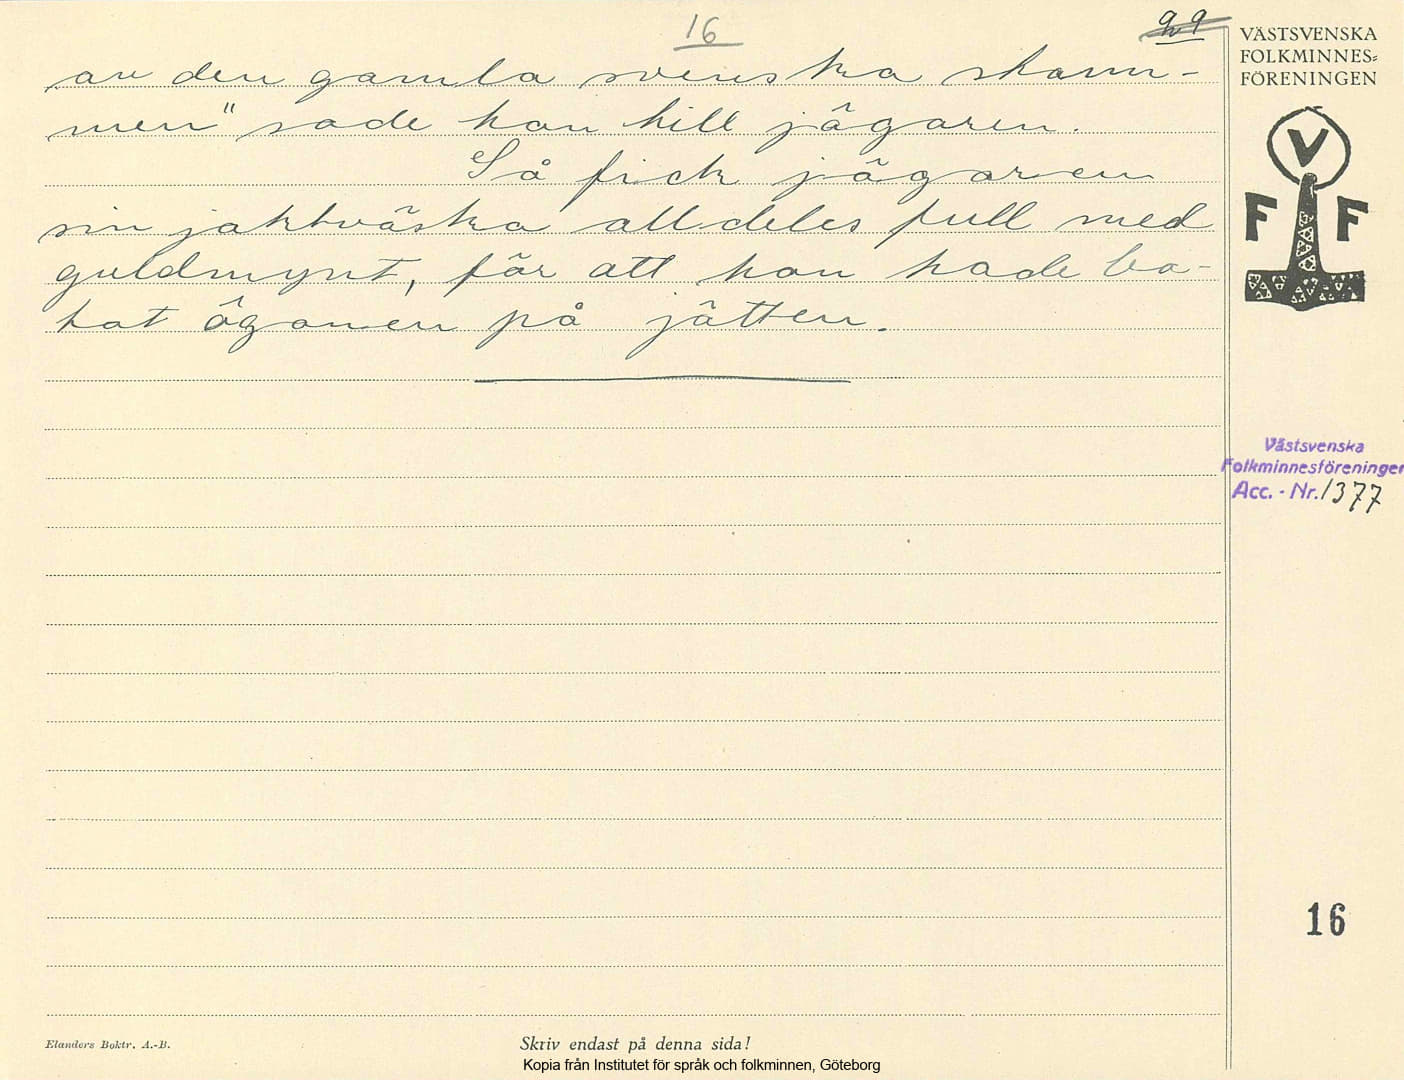 16
VÄSTSVENSKA
FOLKMINNES=
FÖRENINGEN
av den gamla svenska stam-
men" sade han till jägaren.
Så fick jägaren
sin jaktväska alldeles full med
guldmynt, för att han hade ta-
hat ögonen på jätten.
V
F F
Västsvenska
Folkminnesföreningen
Acc. - Nr. 1377
16
Elanders Boktr. A.-B.
Skriv endast på denna sida!
Kopia från Institutet för språk och folkminnen, Göteborg